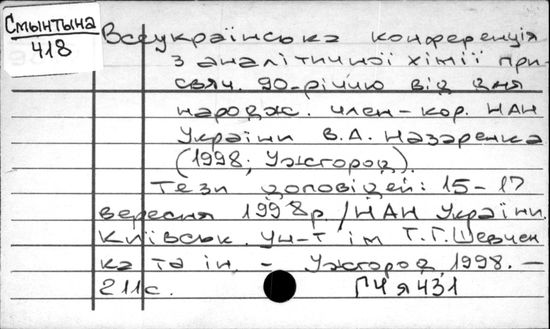 Смынтына
418
Всеукраїнська конференція
з аналітичної хімії при-
свяч. 90-річчю від дня
народж. член-кор. НАН
України В.А. Назаренка
(1998; Ужгород).
Тези доповідей: 15-17
вересня 1998р. / НАН України.
Київськ. ун-т ім Т.Г. Шевчен
ка та ін. - Ужгород, 1998. -
211с. Г4я431